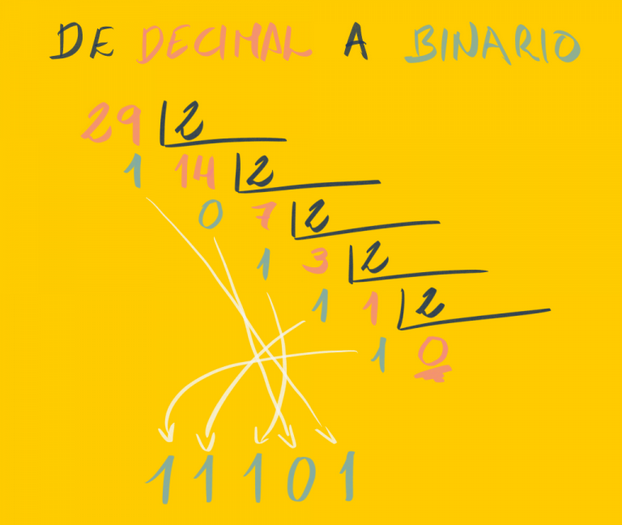 DE DECIMAL A BINARIO
29 2
1 14 2
0 7 2
1 3 2
1 1 2
1 0
11101